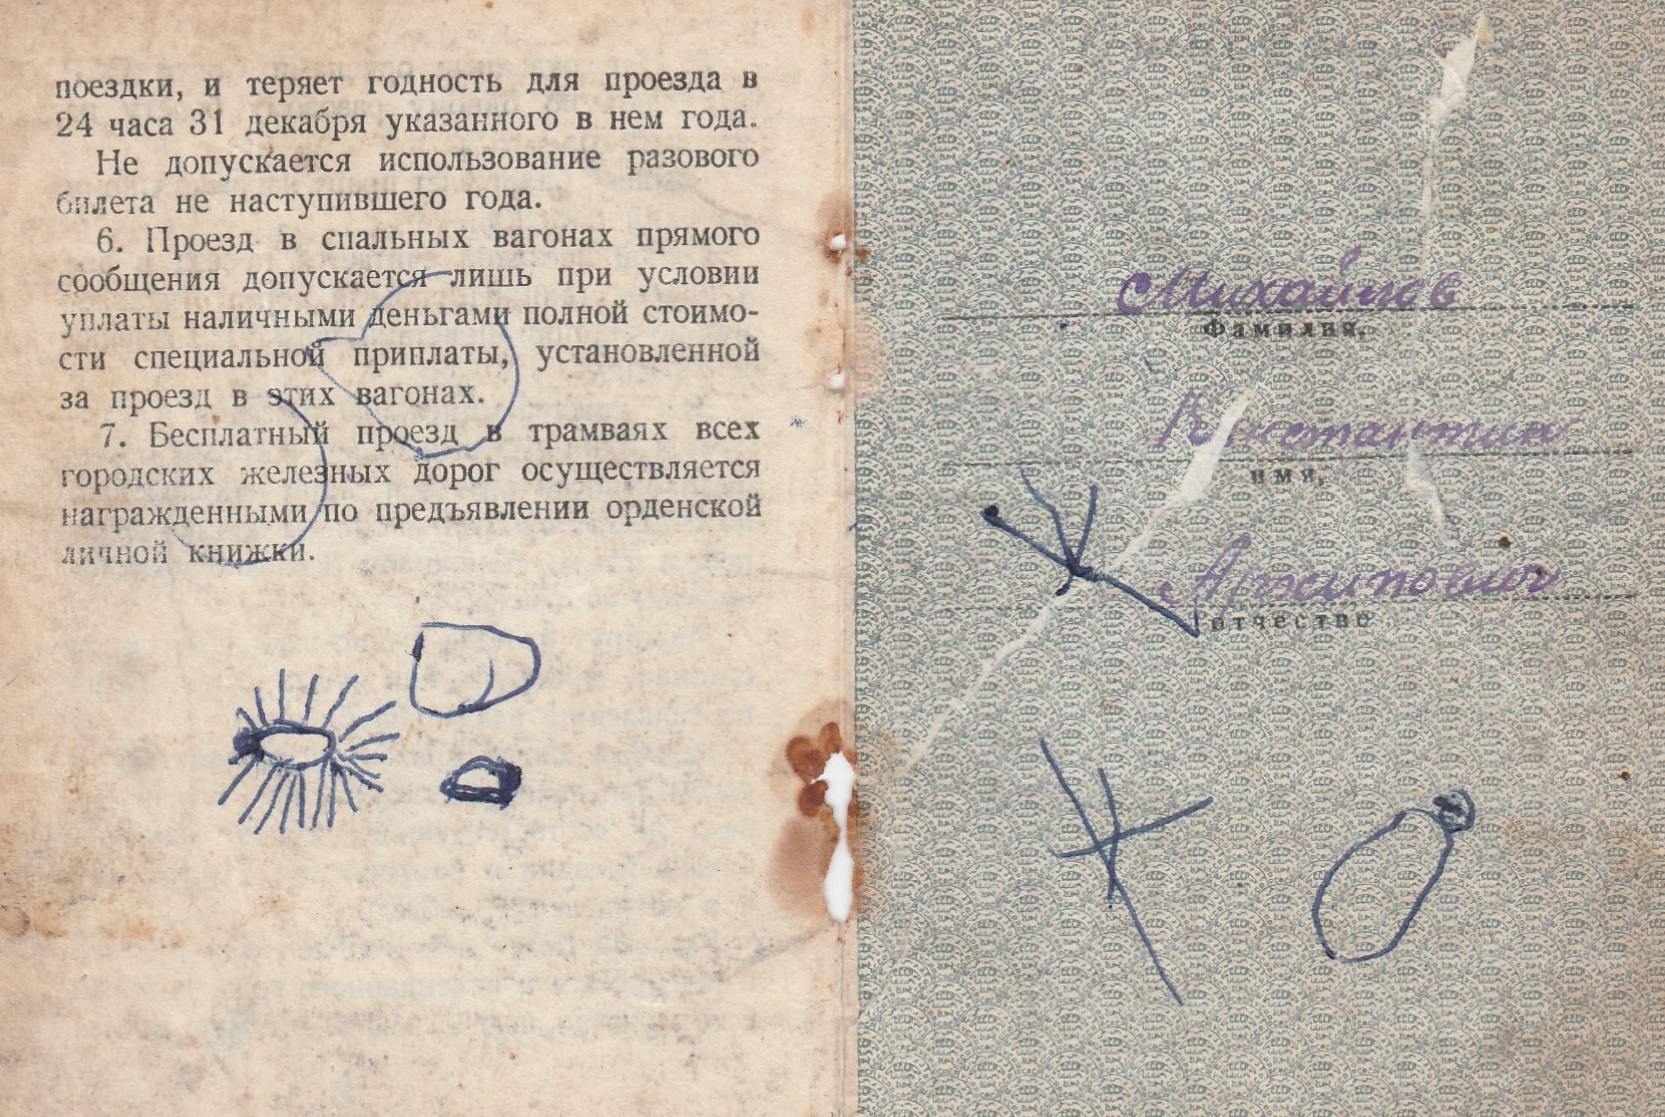 поездки, и теряет годность для проезда в
24 часа 31 декабря указанного в нем года.
Не допускается использование разового
билета не наступившего года.
6. Проезд в спальных вагонах прямого
сообщения допускается лишь при условии
уплаты наличными деньгами полной стоимо-
сти специальной приплаты, установленной
за проезд в этих вагонах.
7. Бесплатный проезд в трамваях всех
городских железных дорог осуществляется
награжденными по предъявлении орденской
личной книжки.
Михайлов
Фамилия,
Константин
имя,
Архипович
отчество